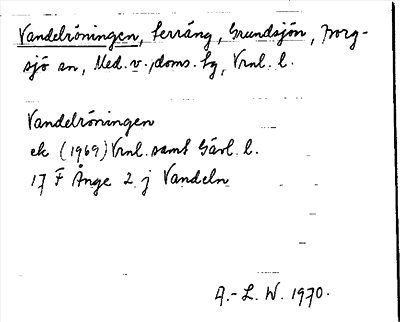 Vandelröningen, terräng, Grundsjön, Borg-
sjö sn, Med. v. doms. hg, Vrnl. l.
Vandelröningen
ek (1969) Vrnl. samt Gävl. l.
17 F Ånge 2 j Vandeln
A.-L. W. 1970.